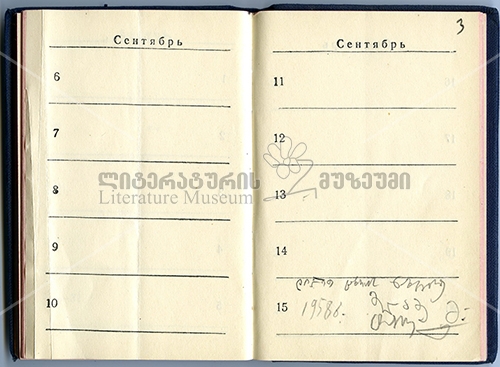 Сентябрь
6
7
8
9
10
3
Сентябрь
11
12
13
14
15
1958
ლიტერატურის მუზეუმი
Literature Museum